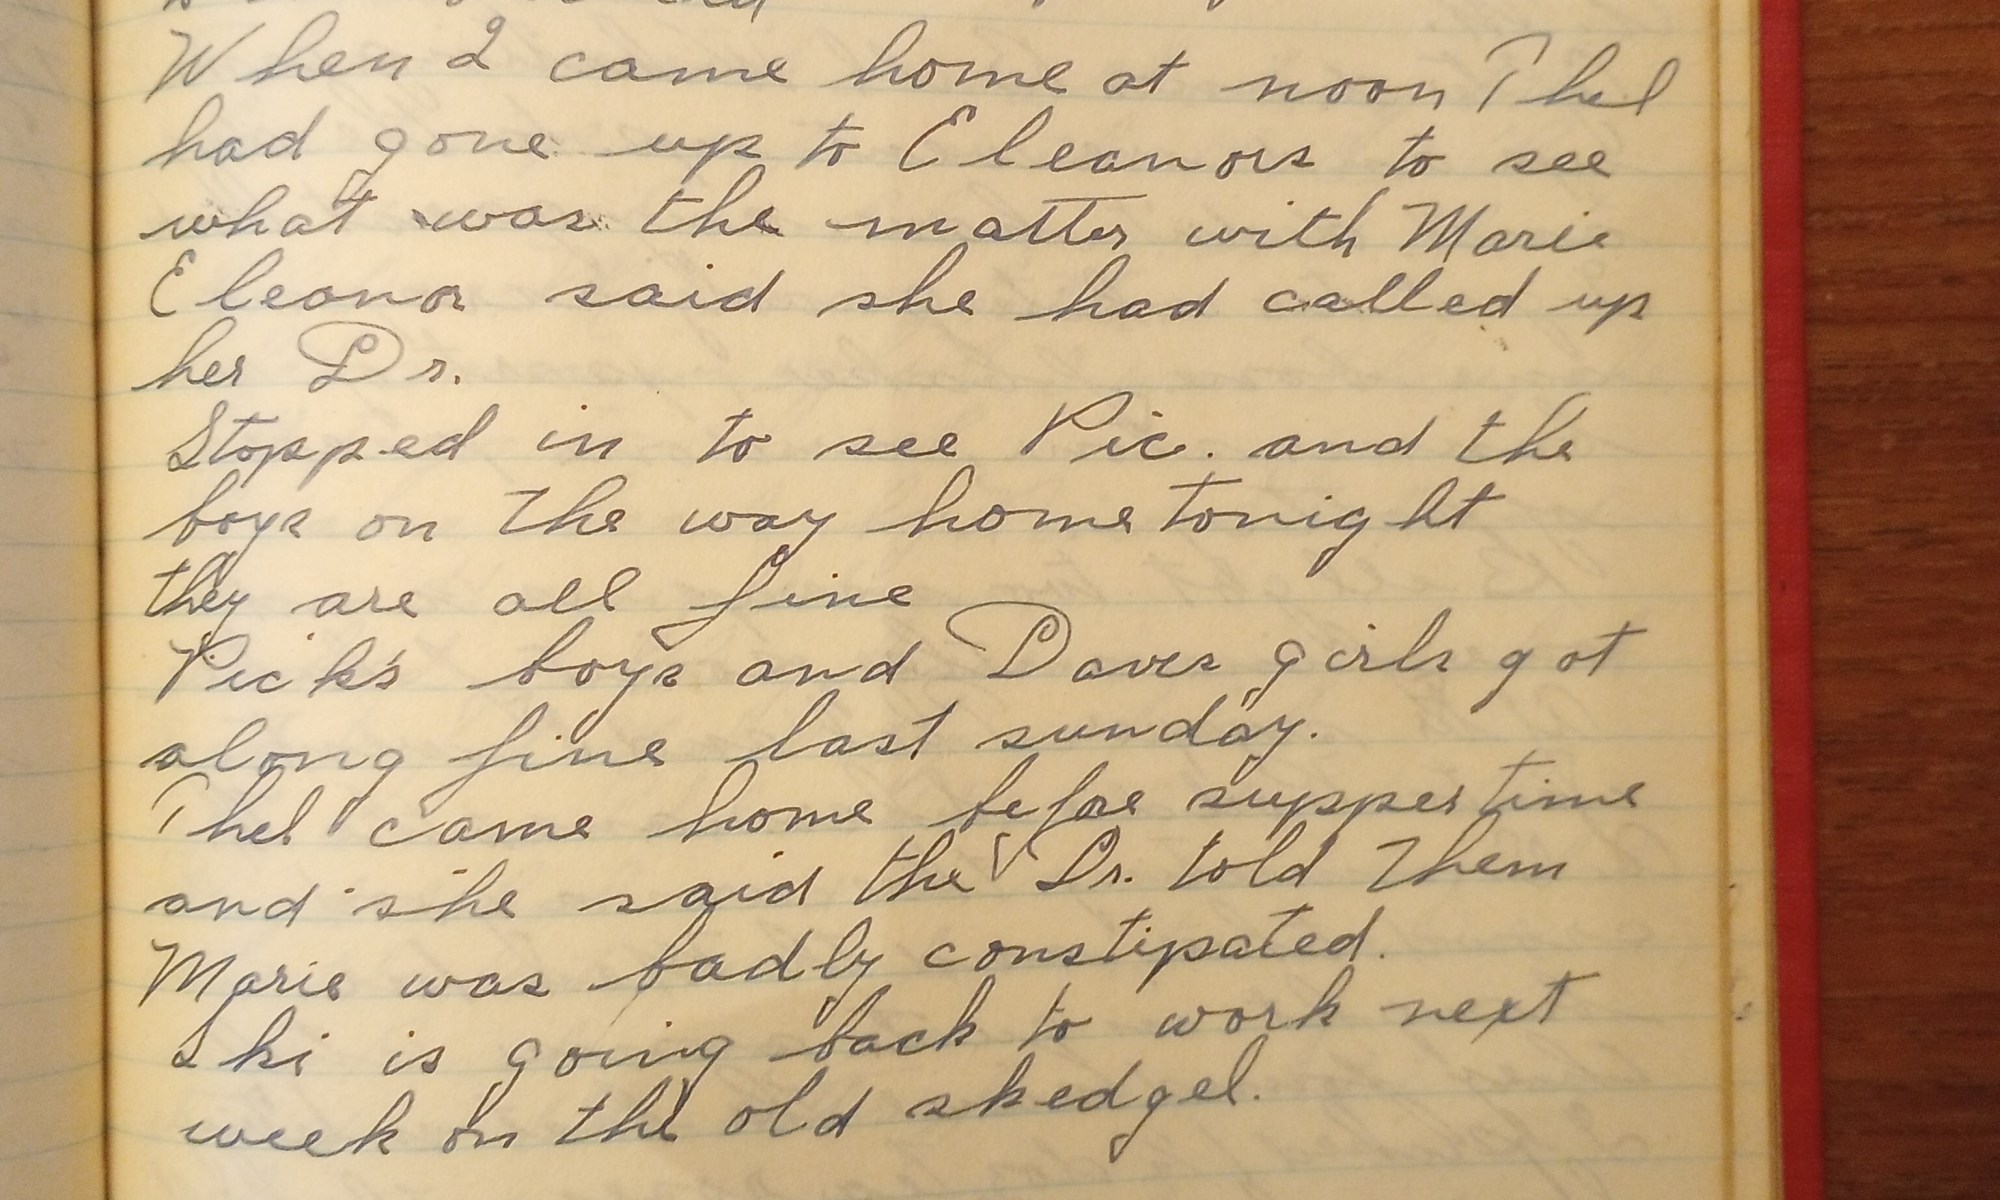 When I came home at noon Thel
had gone up to Eleanors to see
what was the matter with Marie
Eleanor said she had called up
her Dr.
Stopped in to see Pic. and the
boys on the way home tonight
they are all fine
Pick's boys and Daves girls got
along fine last sunday.
Thel came home before supper time
and she said the Dr. told them
Marie was badly constipated.
Ski is going back to work next
week on the old skedgel.